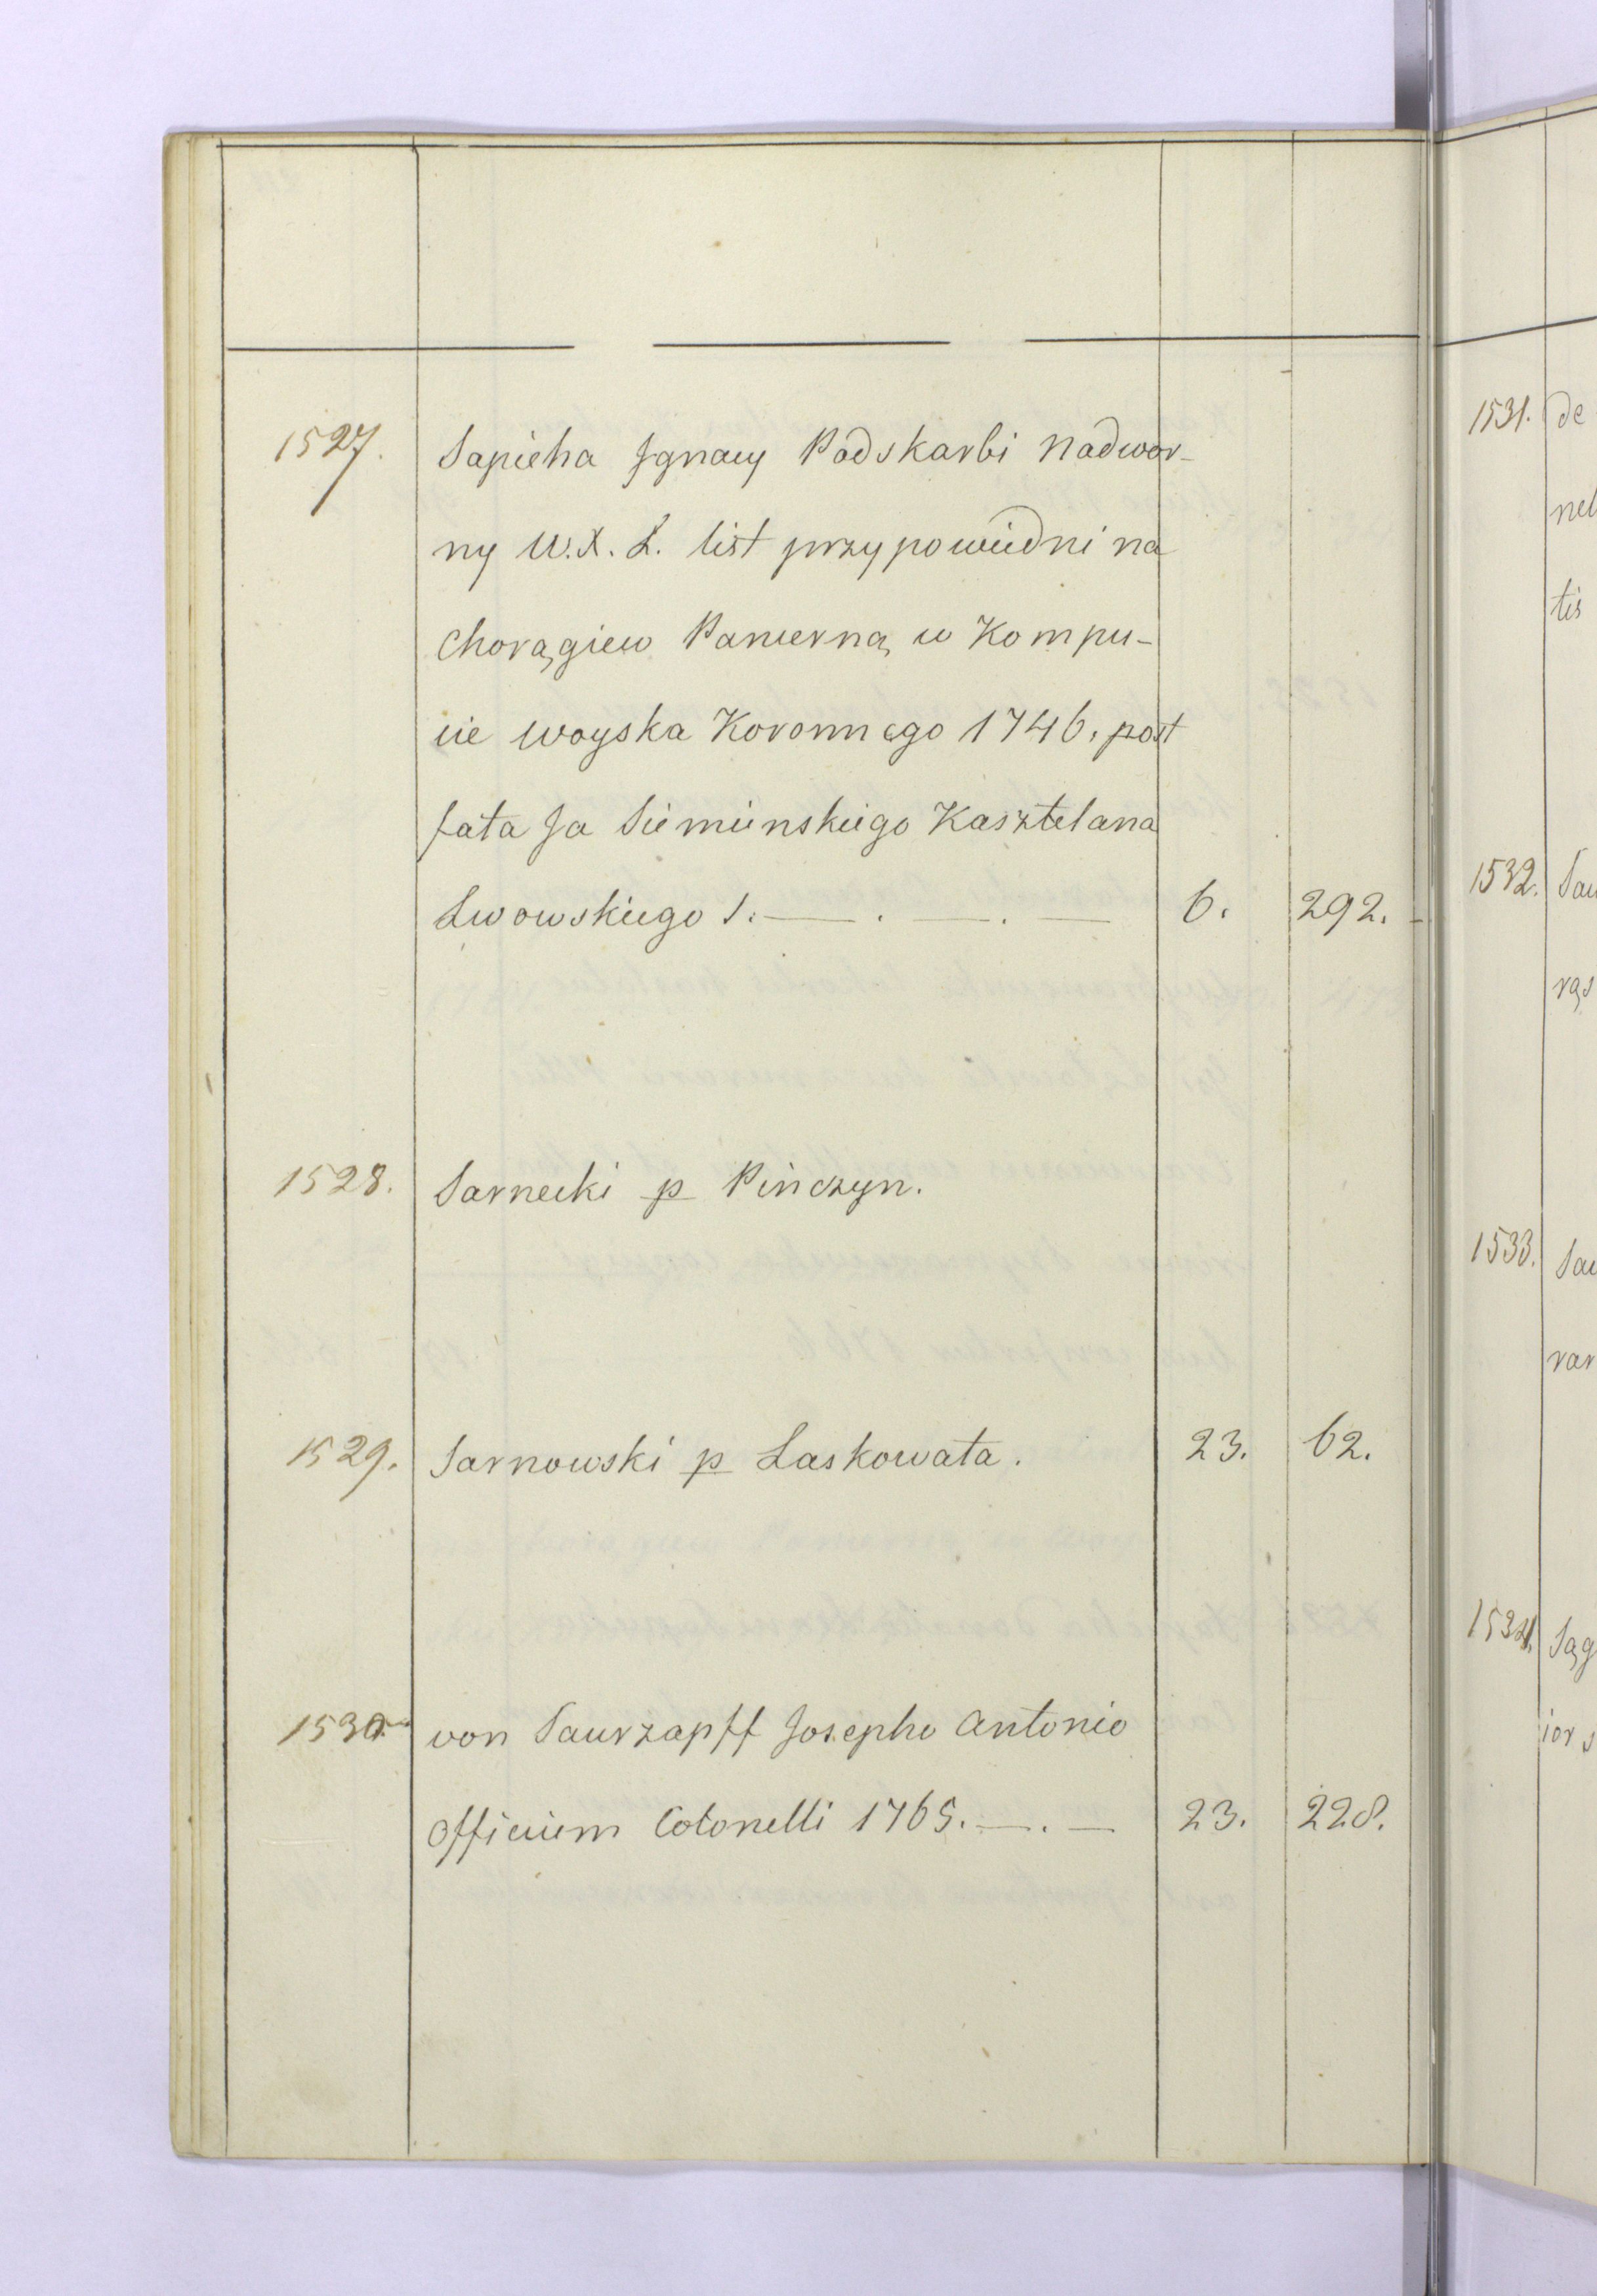 1527. Sapieha Jgnacy Podskarbi Nadwor-
ny W.X.L. list przypowiedni na
Chorągiew Pancerną w Kompu-
cie woyska Koronnego 1746. post
fata Ja Siemienskiego Kasztelana
Lwowskiego S. — . — . — 6. 292.
1528. Sarnecki p Pinczyn.
1529. Sarnowski p Laskowata. 23. 62.
1530. von Saurzapff Josepho Antonio
Officium Colonelli 1765. — . — 23. 228.
1531. de
nel
tis
1532. Sau
rąs
1533. Sau
rar
1534. Sąg
ior s